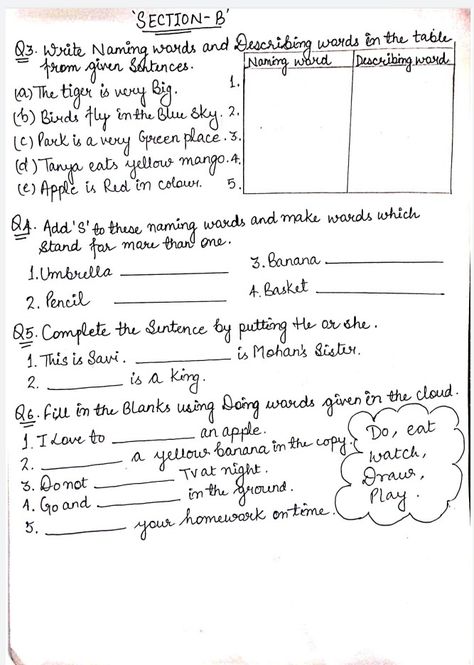 'SECTION-B'
Q3. Write Naming words and Describing words in the table
from given Sentences.
Naming word | Describing word
(a) The tiger is very Big. 1.
(b) Birds fly in the Blue Sky. 2.
(c) Park is a very Green place. 3.
(d) Tanya eats yellow mango. 4.
(e) Apple is Red in colour. 5.
Q4. Add 'S' to these naming words and make words which
Stand for more than one.
1. Umbrella __________ 3. Banana __________
2. Pencil __________ 4. Basket __________
Q5. Complete the Sentence by putting He or she.
1. This is Savi. __________ is Mohan's Sister.
2. __________ is a King.
Q6. Fill in the Blanks using Doing words given in the cloud.
1. I Love to __________ an apple.
2. __________ a yellow banana in the copy.
3. Do not __________ TV at night.
4. Go and __________ in the ground.
5. __________ your homework on time.
Do, eat
watch,
Draw,
Play.